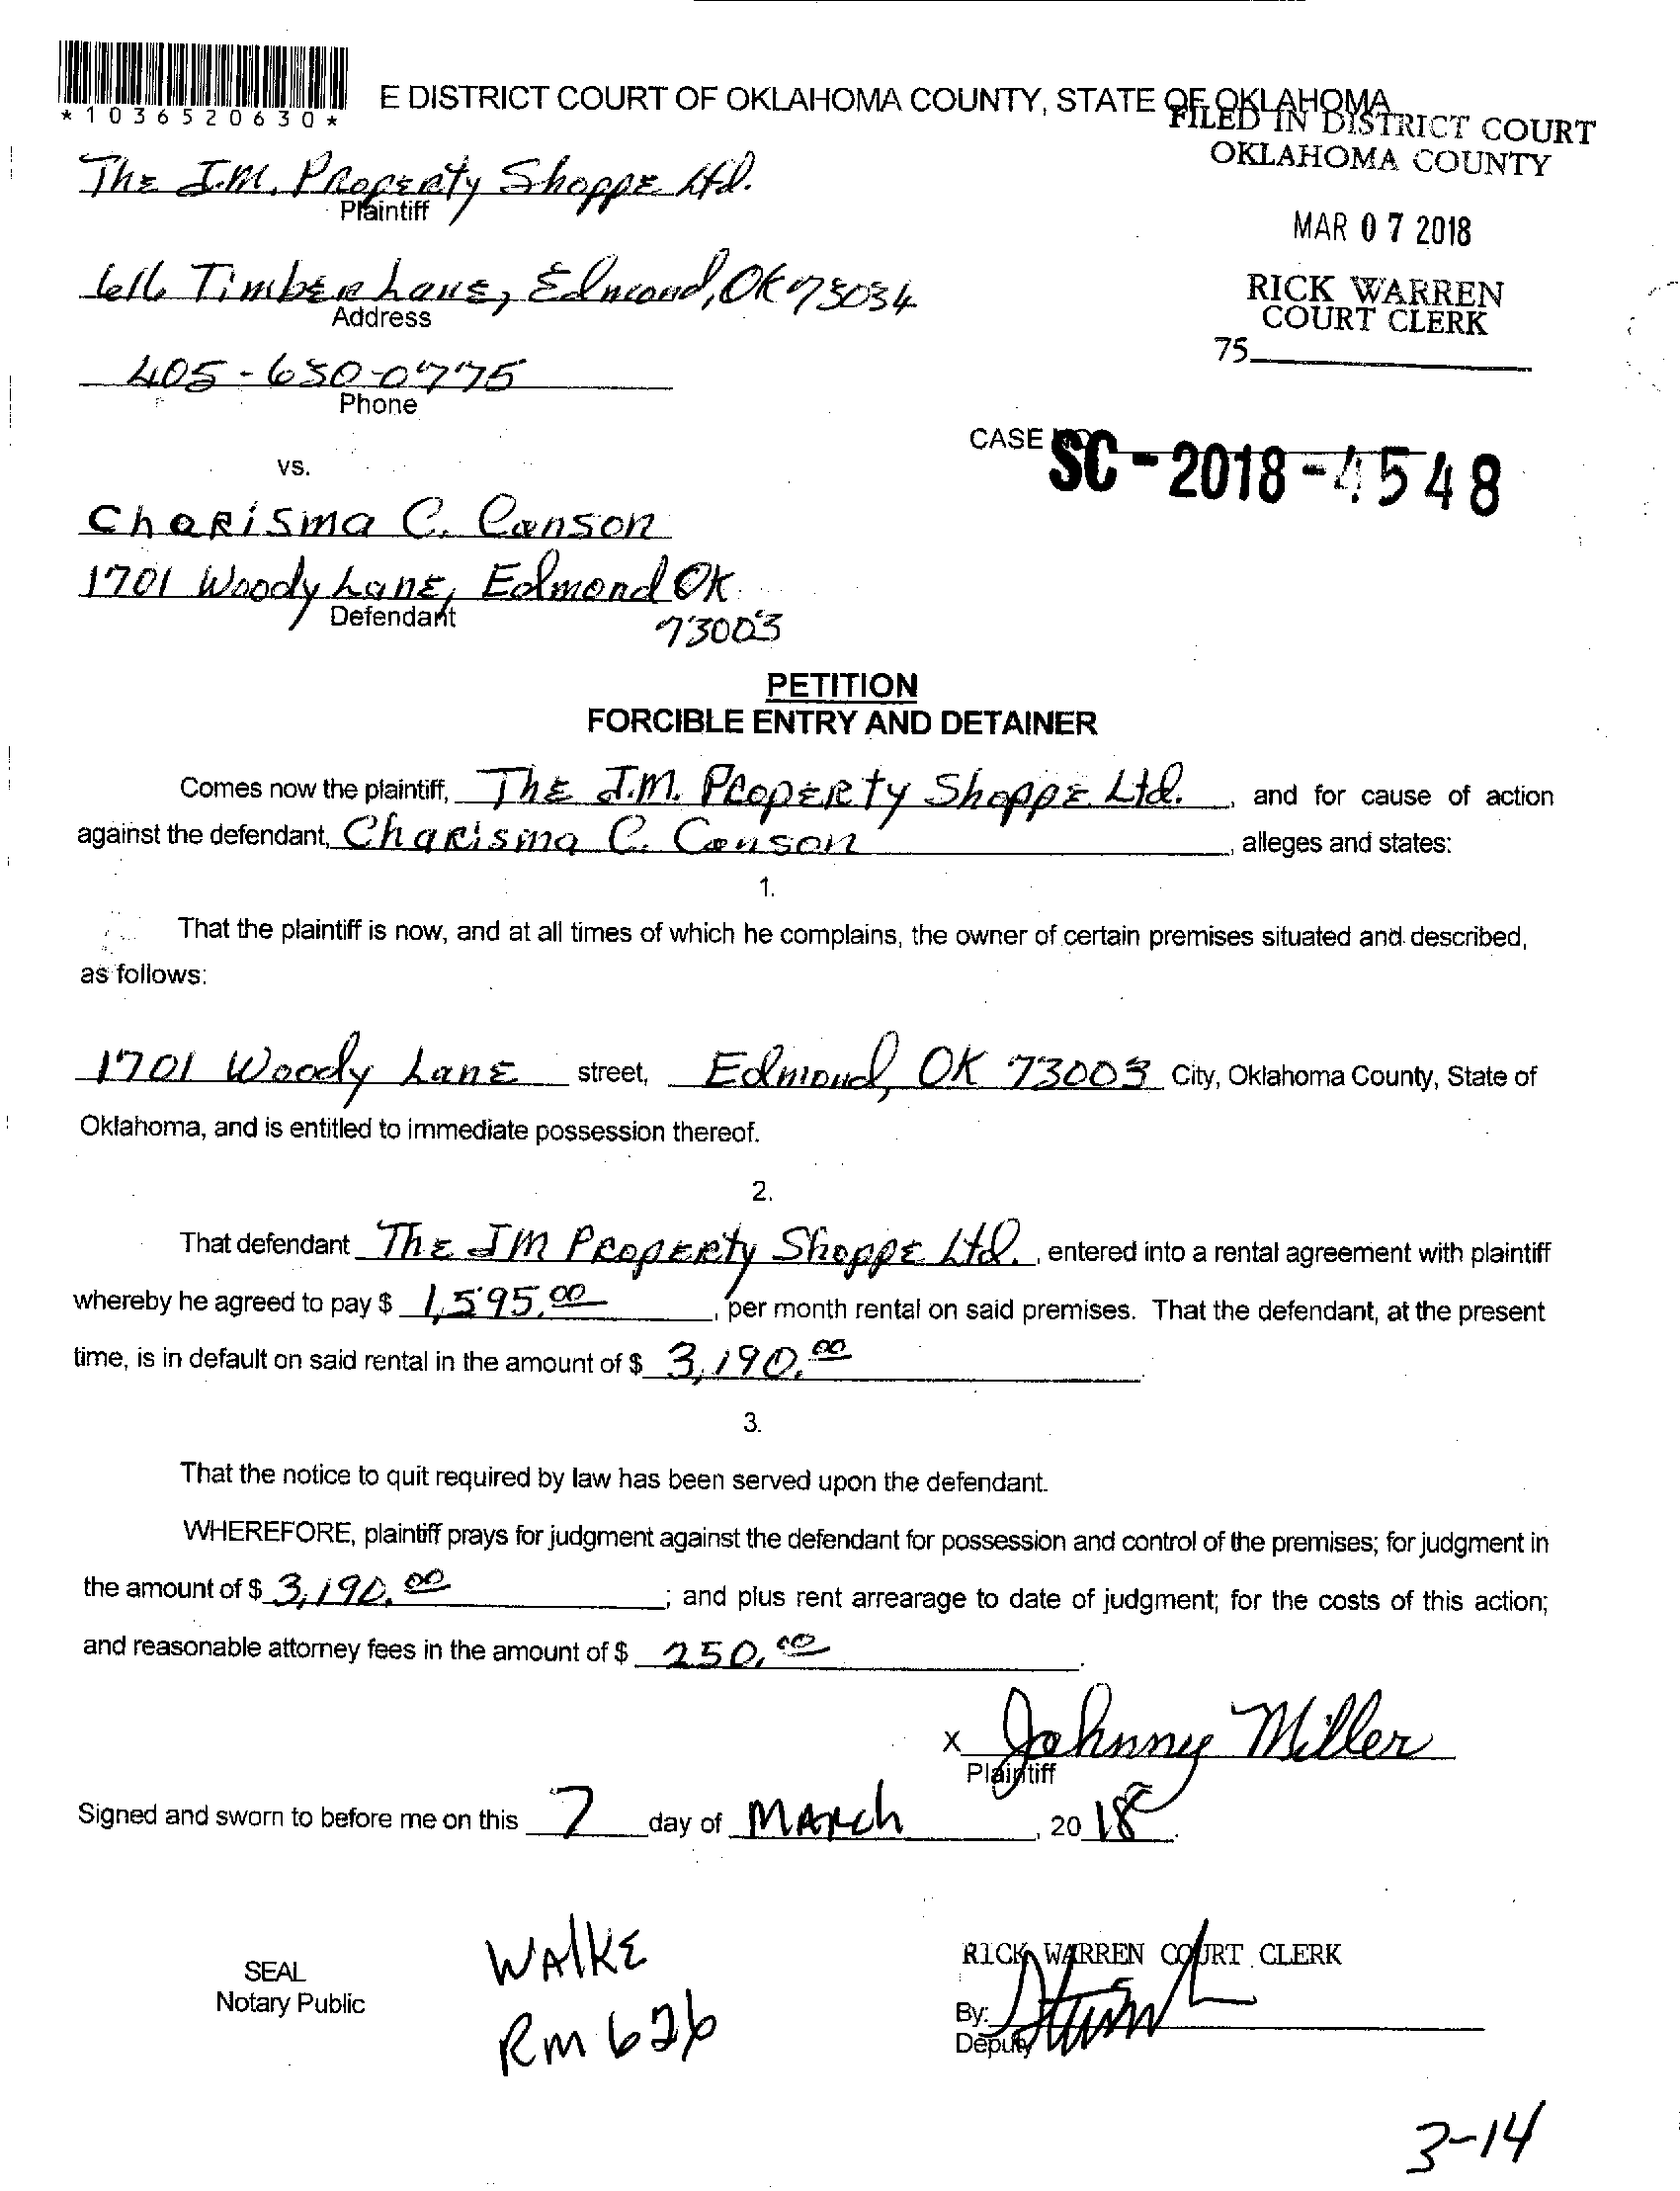 *1036520630*
E DISTRICT COURT OF OKLAHOMA COUNTY, STATE OF OKLAHOMA
FILED IN DISTRICT COURT
OKLAHOMA COUNTY
The J.M. Property Shoppe Ltd.
Plaintiff
MAR 07 2018
616 Timber Lane, Edmond, OK 73034
Address
RICK WARREN
COURT CLERK
75
405-650-0775
Phone
CASE NO
SC-2018-4548
vs.
Charisma C. Canson
1701 Woody Lane, Edmond OK
Defendant
73003
PETITION
FORCIBLE ENTRY AND DETAINER
Comes now the plaintiff, The J.M. Property Shoppe Ltd. , and for cause of action
against the defendant, Charisma C. Canson , alleges and states:
1.
That the plaintiff is now, and at all times of which he complains, the owner of certain premises situated and described,
as follows:
1701 Woody Lane street, Edmond, OK 73003 City, Oklahoma County, State of
Oklahoma, and is entitled to immediate possession thereof.
2.
That defendant The JM Property Shoppe Ltd. , entered into a rental agreement with plaintiff
whereby he agreed to pay $ 1,595.00 , per month rental on said premises. That the defendant, at the present
time, is in default on said rental in the amount of $ 3,190.00 .
3.
That the notice to quit required by law has been served upon the defendant.
WHEREFORE, plaintiff prays for judgment against the defendant for possession and control of the premises; for judgment in
the amount of $ 3,190.00 ; and plus rent arrearage to date of judgment; for the costs of this action;
and reasonable attorney fees in the amount of $ 250.00 .
x Johnny Miller
Plaintiff
Signed and sworn to before me on this 7 day of March , 20 18 .
SEAL
Notary Public
Walke
Rm 626
RICK WARREN COURT CLERK
By:
Deputy
3-14